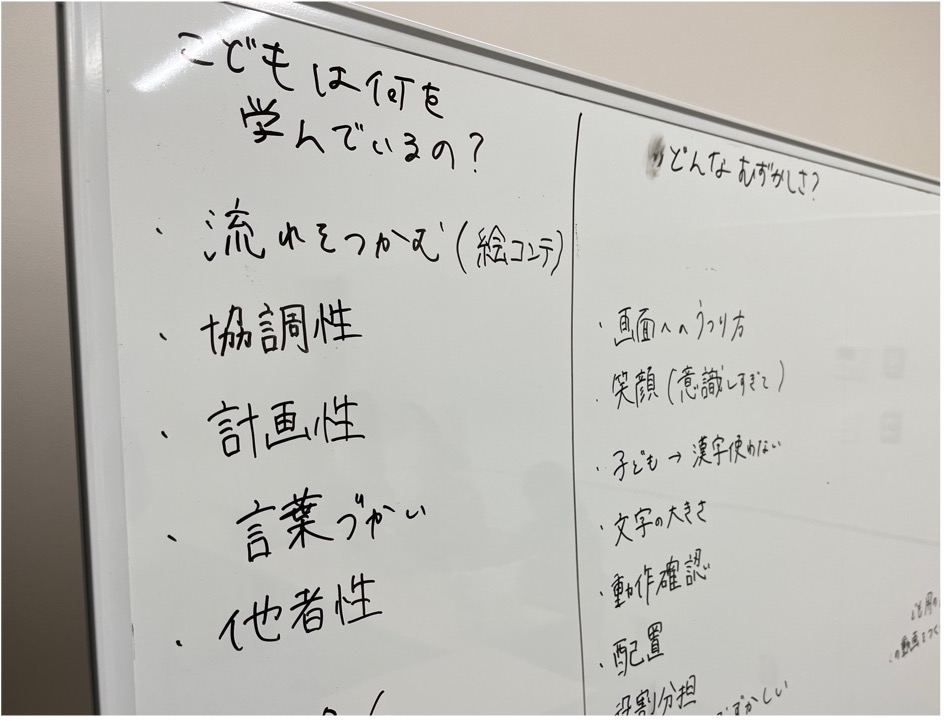 こどもは何を
学んでいるの?
・流れをつかむ(絵コンテ)
・協調性
・計画性
・言葉づかい
・他者性
どんなむずかしさ?
・画面へのうつり方
・笑顔(意識しすぎて)
・子ども→漢字使わない
・文字の大きさ
・動作確認
・配置
役割分担
むずかしい
の動画をつく